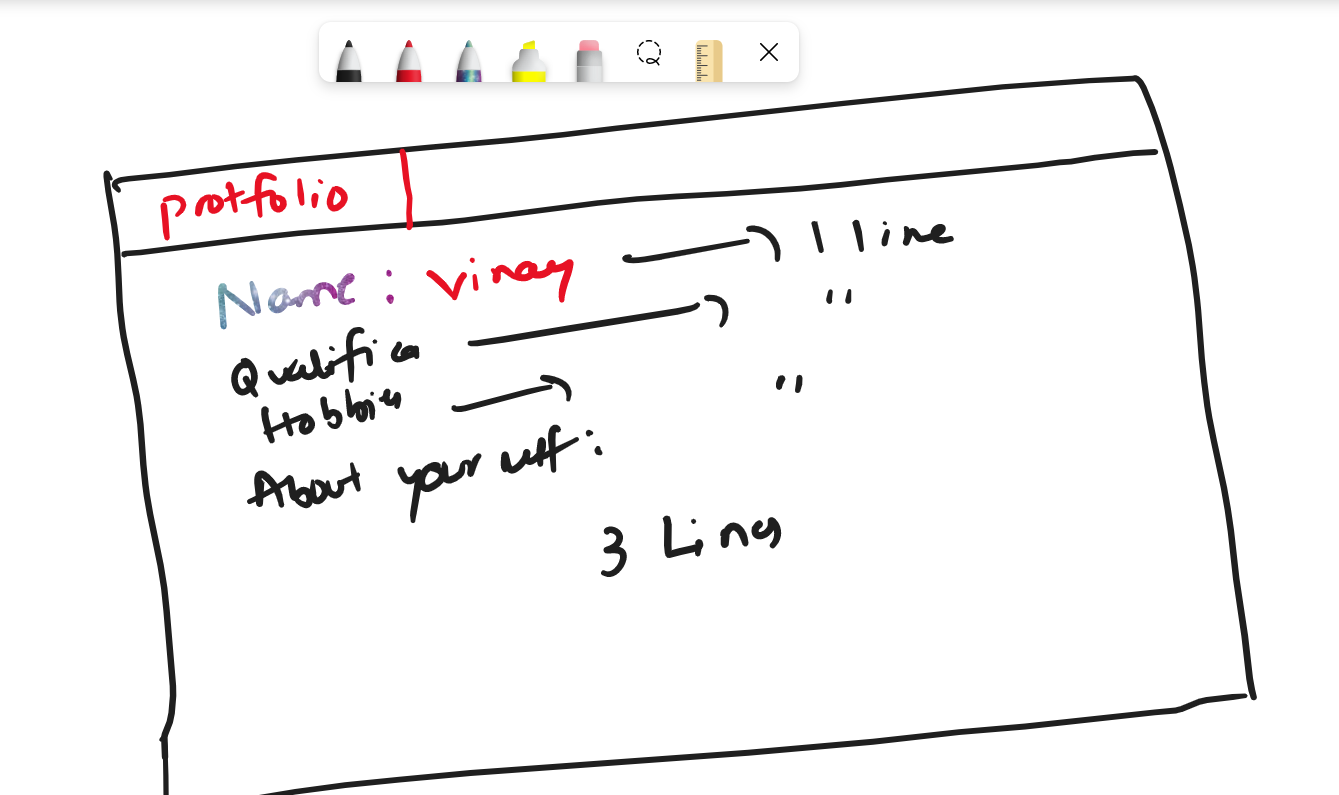 Protfolio
Name : Vinay 1 line
Qualifica "
Hobbies "
About your self :
3 Lines